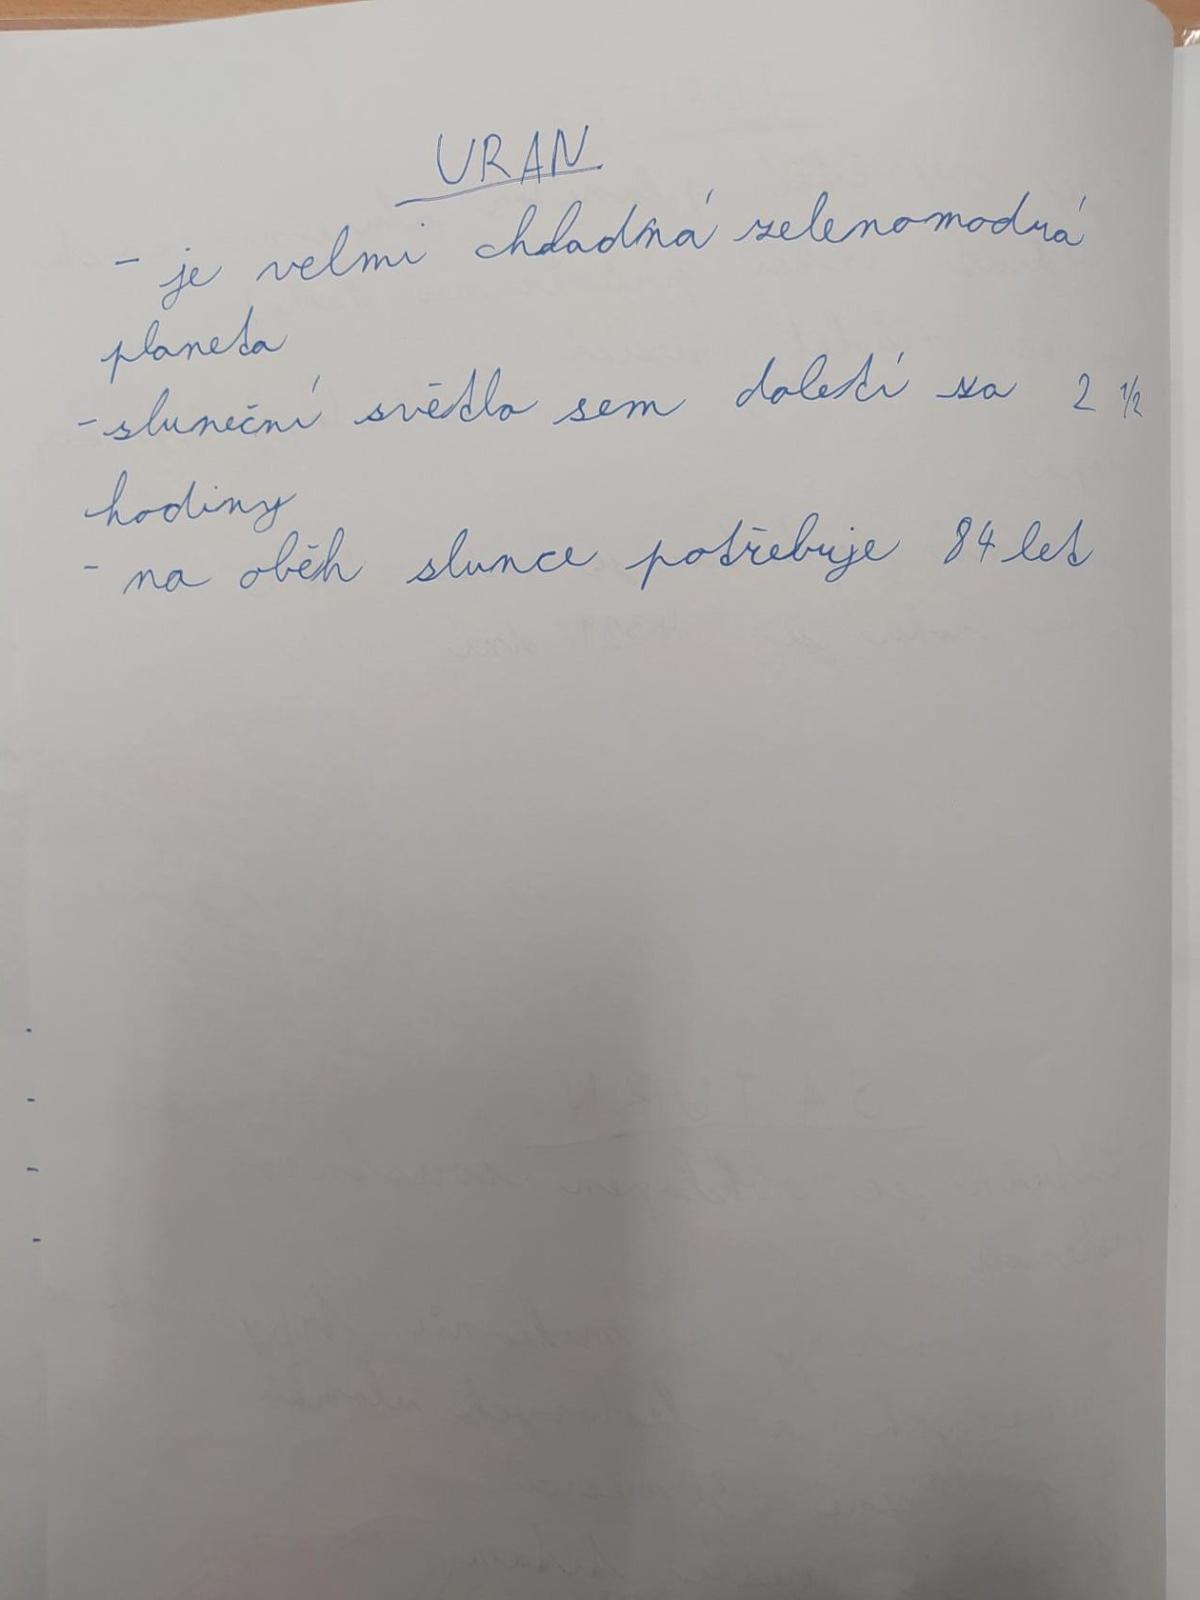 URAN
- je velmi chladná zelenomodrá
planeta
- sluneční světlo sem doletí za 2 1/2
hodiny
- na oběh slunce potřebuje 84 let